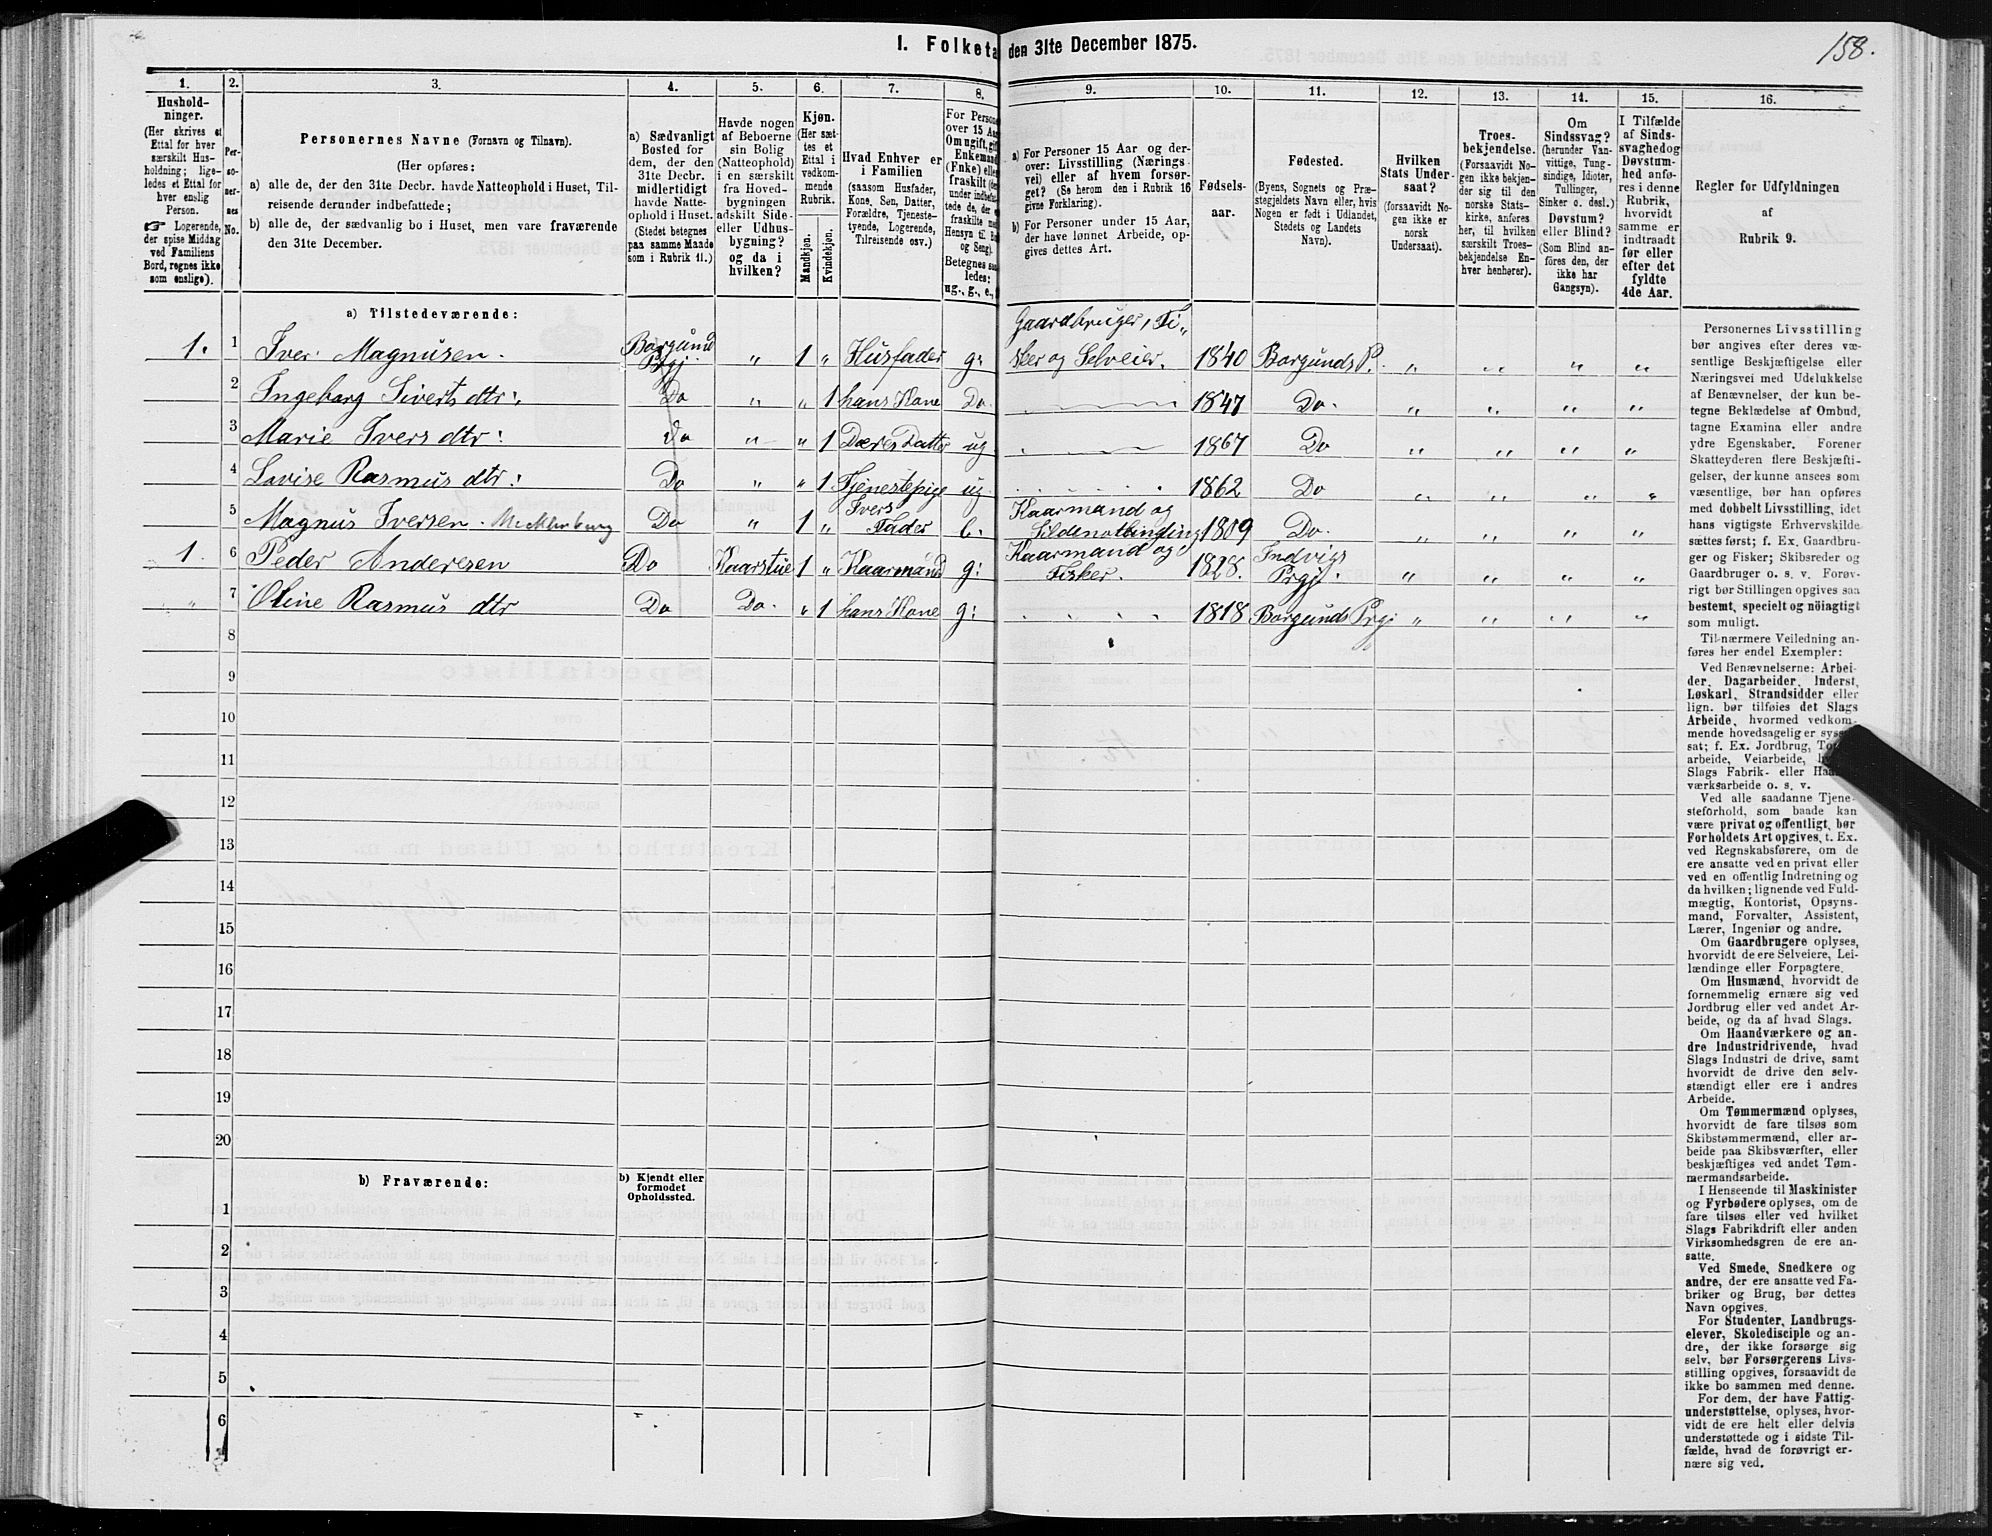 I. Folketa den 31te December 1875.
158.
1. 2. 3. 4. 5. 6. 7. 8. 9. 10. 11. 12. 13. 14. 15. 16.
Hushold-
ninger.
(Her skrives et
Ettal for hver
særskilt Hus-
holdning; lige-
ledes et Ettal for
hver enslig
Person.
☞ Logerende,
der spise Middag
ved Familiens
Bord, regnes ikke
som enslige).
Per-
so-
ner-
nes
No.
Personernes Navne (Fornavn og Tilnavn).
(Her opføres:
a) alle de, der den 31te Decbr. havde Natteophold i Huset, Til-
reisende derunder indbefattede;
b) alle de, der sædvanlig bo i Huset, men vare fraværende
den 31te December.
a) Sædvanligt
Bosted for
dem, der den
31te Decbr.
midlertidigt
havde Natte-
ophold i Huset.
(Stedet betegnes
paa samme Maade
som i Rubrik 11.)
Havde nogen
af Beboerne
sin Bolig
(Natteophold)
i en særskilt
fra Hoved-
bygningen
adskilt Side-
eller Udhus-
bygning?
og da i
hvilken?
Kjøn.
(Her sæt-
tes et
Ettal i
vedkom-
mende
Rubrik.
Mandkjøn.
Kvindekjøn.
Hvad Enhver er
i Familien
(saasom Husfader,
Kone, Søn, Datter,
Forældre, Tjeneste-
tyende, Logerende,
Tilreisende osv.)
For Persone
over 15 Aar
Om ugift, gift
Enkemand
(Fnke) elle
fraskilt (der
under indbefat-
tede de, der e
fraskilte med
Hensyn til B
og Seng).
Betegnes saa
ledes:
ug., g., e., f
a) For Personer 15 Aar og der-
over: Livsstilling (Nærings-
vei) eller af hvem forsør-
get? (Se herom den i Rubrik 16
givne Forklaring).
b) For Personer under 15 Aar,
der have lønnet Arbeide, op-
gives dettes Art.
Fødsels-
aar.
Fødested.
(Byens, Sognets og Præ-
stegjeldets Navn eller, hvis
Nogen er født i Udlandet,
Stedets og Landets
Navn).
Hvilken
Stats Under-
saat?
(forsaavidt No-
gen ikke er
norsk
Undersaat).
Troes-
bekjendelse.
(Forsaavidt No-
gen ikke bekjen-
der sig til den
norske Stats-
kirke, anføres
her, til hvilken
særskilt Troes-
bekjendelse En-
hver henhører).
Om
Sindssvag?
(herunder Van-
vittige, Tung-
sindige, Idioter,
Tullinger,
Sinker o. desl.)
Døvstum?
eller Blind?
(Som Blind an-
føres den, der
ikke har
Gangsyn).
I Tilfælde
af Sinds-
svaghed og
Døvstum-
hed anfø-
res i denne
Rubrik,
hvorvidt
samme er
indtraadt
før eller
efter det
fyldte
4de Aar.
Regler for Udfyldningen
af
Rubrik 9.
a) Tilstedeværende:
1. 1 Iver Magnusen. Borgund Prgj. " 1 " Husfader g. Gaardbruger, Fi-
sker og Selveier. 1840 Borgunds P. " " " "
2 Ingeborg Siverts dtr: Do " " 1 hans Kone Do. 1847 Do. " " " "
3 Marie Ivers dtr: Do " " 1 Deres Datter ug 1867 Do " " " "
4 Lovise Rasmus dtr: Do " " 1 Tjenestepige ug. 1862 Do " " " "
5 Magnus Iversen. Mecklenburg Do " 1 " Ivers Fader e. Kaarmand og
Sildenotbinding 1809 Do. " " " "
1. 6 Peder Andersen Do Kaarstue 1 " Kaarmand g: Kaarmand og
Fisker. 1828. Indvigs Prgj. " " " "
" 7 Oline Rasmus dtr Do Do. " 1 hans Kone g: 1818 Borgunds Prgj " " " "
8
9
10
11
12
13
14
15
16
17
18
19
20
b) Fraværende:
b) Kjendt eller
formodet
Opholdssted.
1
2
3
4
5
6
Personernes Livsstilling
bør angives efter deres væ-
sentlige Beskjæftigelse eller
Næringsvei med Udelukkelse
af Benævnelser, der kun be-
tegne Beklædelse af Ombud,
tagne Examina eller andre
ydre Egenskaber. Forener
Skatteyderen flere Beskjæfti-
gelser, der kunne ansees som
væsentlige, bør han opføres
med dobbelt Livsstilling, idet
hans vigtigste Erhvervskilde
sættes først; f. Ex. Gaardbru-
ger og Fisker; Skibsreder og
Gaardbruger o. s. v. Forøv-
rigt bør Stillingen opgives saa
bestemt, specielt og nöiagtigt
som muligt.
Til nærmere Veiledning an-
føres her endel Exempler:
Ved Benævnelserne: Arbei-
der, Dagarbeider, Inderst,
Løskarl, Strandsidder eller
lign. bør tilføies det Slags
Arbeide, hvormed vedkom-
mende hovedsagelig er syssel-
sat; f. Ex. Jordbrug,
arbeide, Veiarbeide,
Slags Fabrik- eller Haand-
værksarbeide o. s. v.
Ved alle saadanne Tjene-
steforhold, som baade kan
være privat og offentligt, bør
Forholdets Art opgives, t. Ex.
ved Regnskabsførere, om de
ere ansatte ved en privat eller
ved en offentlig Indretning og
da hvilken; lignende ved Fuld-
mægtig, Kontorist, Opsyns-
mand, Forvalter, Assistent,
Lærer, Ingeniør og andre.
Om Gaardbrugere oplyses,
hvorvidt de ere Selveiere, Lei-
lændinge eller Forpagtere.
Om Husmænd, hvorvidt de
fornemmelig ernære sig ved
Jordbrug eller ved andet Ar-
beide, og da af hvad Slags.
Om Haandværkere og an-
dre Industridrivende, hvad
Slags Industri de drive, samt
hvorvidt de drive den selv-
stændigt eller ere i andres
Arbeide.
Om Tømmermænd oplyses,
hvorvidt de fare tilsøs som
Skibstømmermænd, eller ar-
beide paa Skibsværfter, eller
beskjæftiges ved andet Tøm-
mermandsarbeide.
I Henseende til Maskinister
og Fyrbødere oplyses, om de
fare tilsøs eller ved hvilket
Slags Fabrikdrift eller anden
Virksomhedsgren de ere an-
satte.
Ved Smede, Snedkere og
andre, der ere ansatte ved Fa-
briker og Brug, bør dettes
Navn opgives.
For Studenter, Landbrugs-
elever, Skoledisciple og an-
dre, der ikke forsørge sig
selv, bør Forsørgerens Livs-
stilling opgives, forsaavidt de
ikke bo sammen med denne.
For dem, der have Fattig-
understøttelse, oplyses, hvor-
vidt de ere helt eller delvis
understøttede og i sidste Til-
fælde, hvad de forøvrigt er-
nære sig ved.